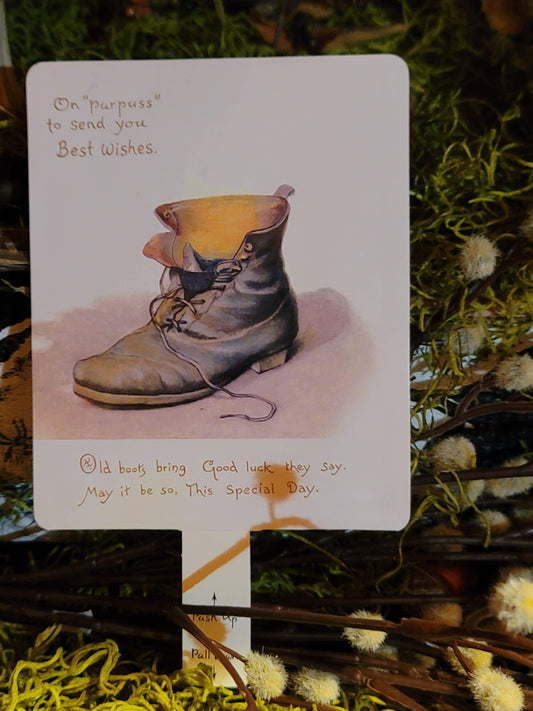 On "purpuss"
to send you
Best Wishes.
Old boots bring Good luck they say.
May it be so, This Special Day.
Push Up
Pull